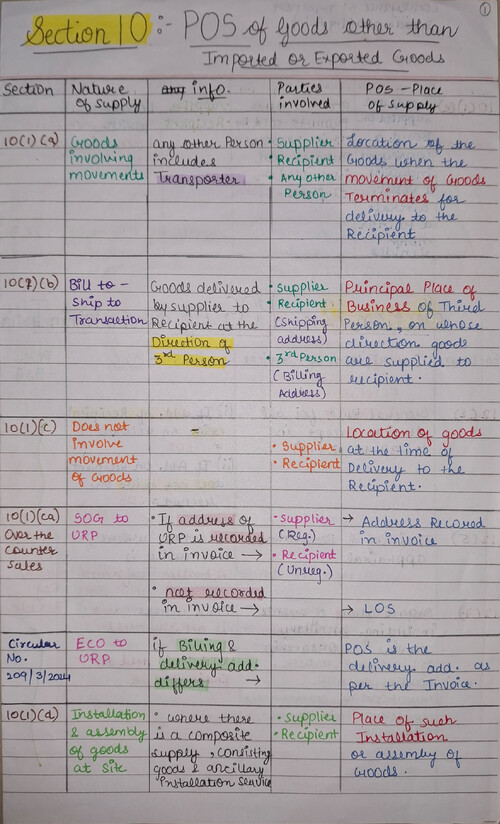 ①
Section 10 :- POS of Goods other than
Imported or Exported Goods
Section
Nature
of supply
info.
Parties
involved
POS - Place
of supply
10(1)(a)
Goods
involving
movements
any other Person
includes
Transporter
• Supplier
• Recipient
• Any other
Person
Location of the
Goods when the
movement of Goods
Terminates for
delivery to the
Recipient
10(1)(b)
Bill to -
Ship to
Transaction
Goods delivered
by supplier to
Recipient at the
Direction of
3rd Person
• Supplier
• Recipient
(Shipping
address)
• 3rd Person
(Billing
Address)
Principal Place of
Business of Third
Person, on whose
direction goods
are supplied to
recipient.
10(1)(c)
Does not
involve
movement
of Goods
-
• Supplier
• Recipient
Location of goods
at the time of
Delivery to the
Recipient.
10(1)(ca)
Over the
counter
sales
SOG to
URP
• If address of
URP is recorded
in invoice →
• not recorded
in invoice →
• Supplier
(Reg.)
• Recipient
(Unreg.)
→ Address Recored
in invoice
→ LOS
Circular
No.
209/3/2024
ECO to
URP
if Billing &
delivery add.
differs →
POS is the
delivery add. as
per the Invoice.
10(1)(d)
Installation
& assembly
of goods
at site
• where there
is a composite
supply, consisting
goods & ancillary
installation service
• Supplier
• Recipient
Place of such
Installation
or assembly of
Goods.